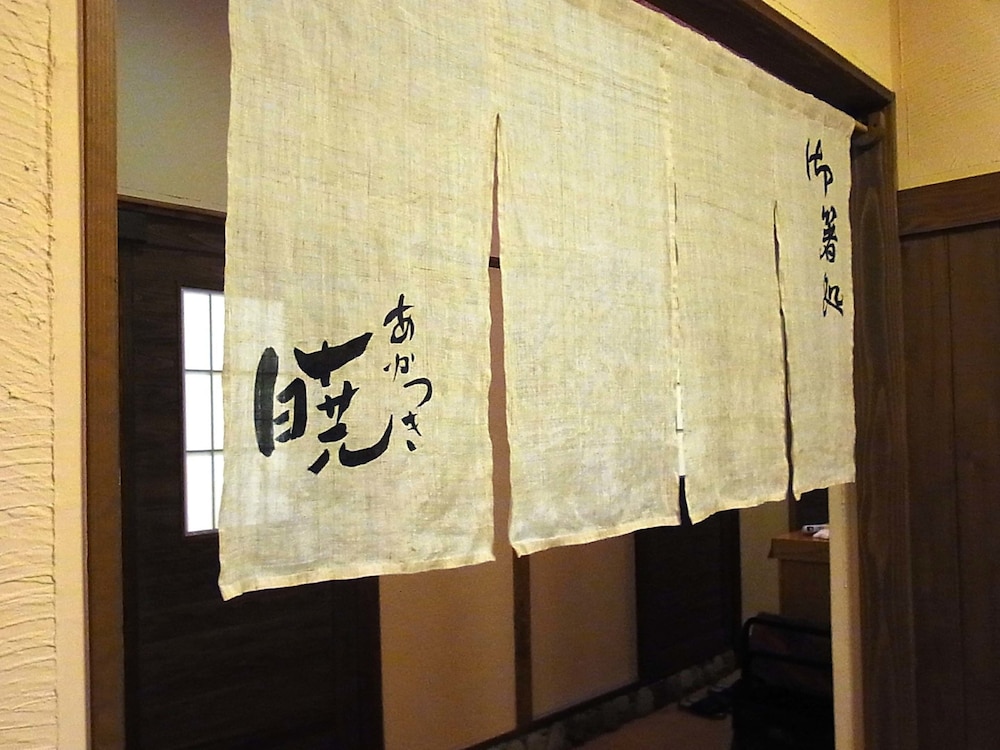 御箸処
あかつき
暁